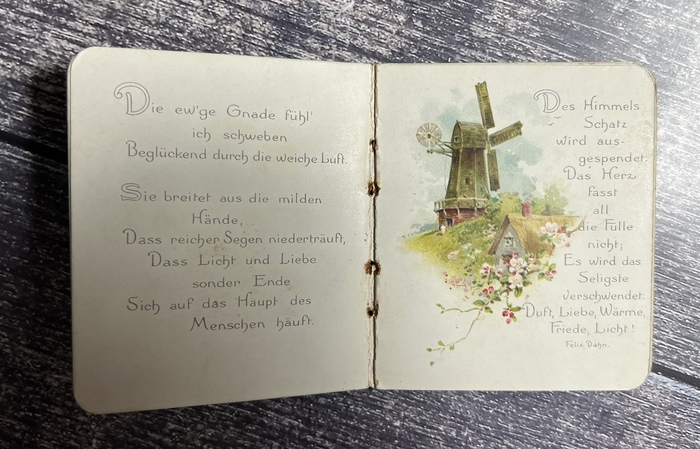 Die ew'ge Gnade fühl'
ich schweben
Beglückend durch die weiche Luft.
Sie breitet aus die milden
Hände,
Dass reicher Segen niederträuft,
Dass Licht und Liebe
sonder Ende
Sich auf das Haupt des
Menschen häuft.
Des Himmels
Schatz
wird aus-
gespendet:
Das Herz
fasst
all
die Fülle
nicht;
Es wird das
Seligste
verschwendet:
Duft, Liebe, Wärme,
Friede, Licht!
Felix Dahn.